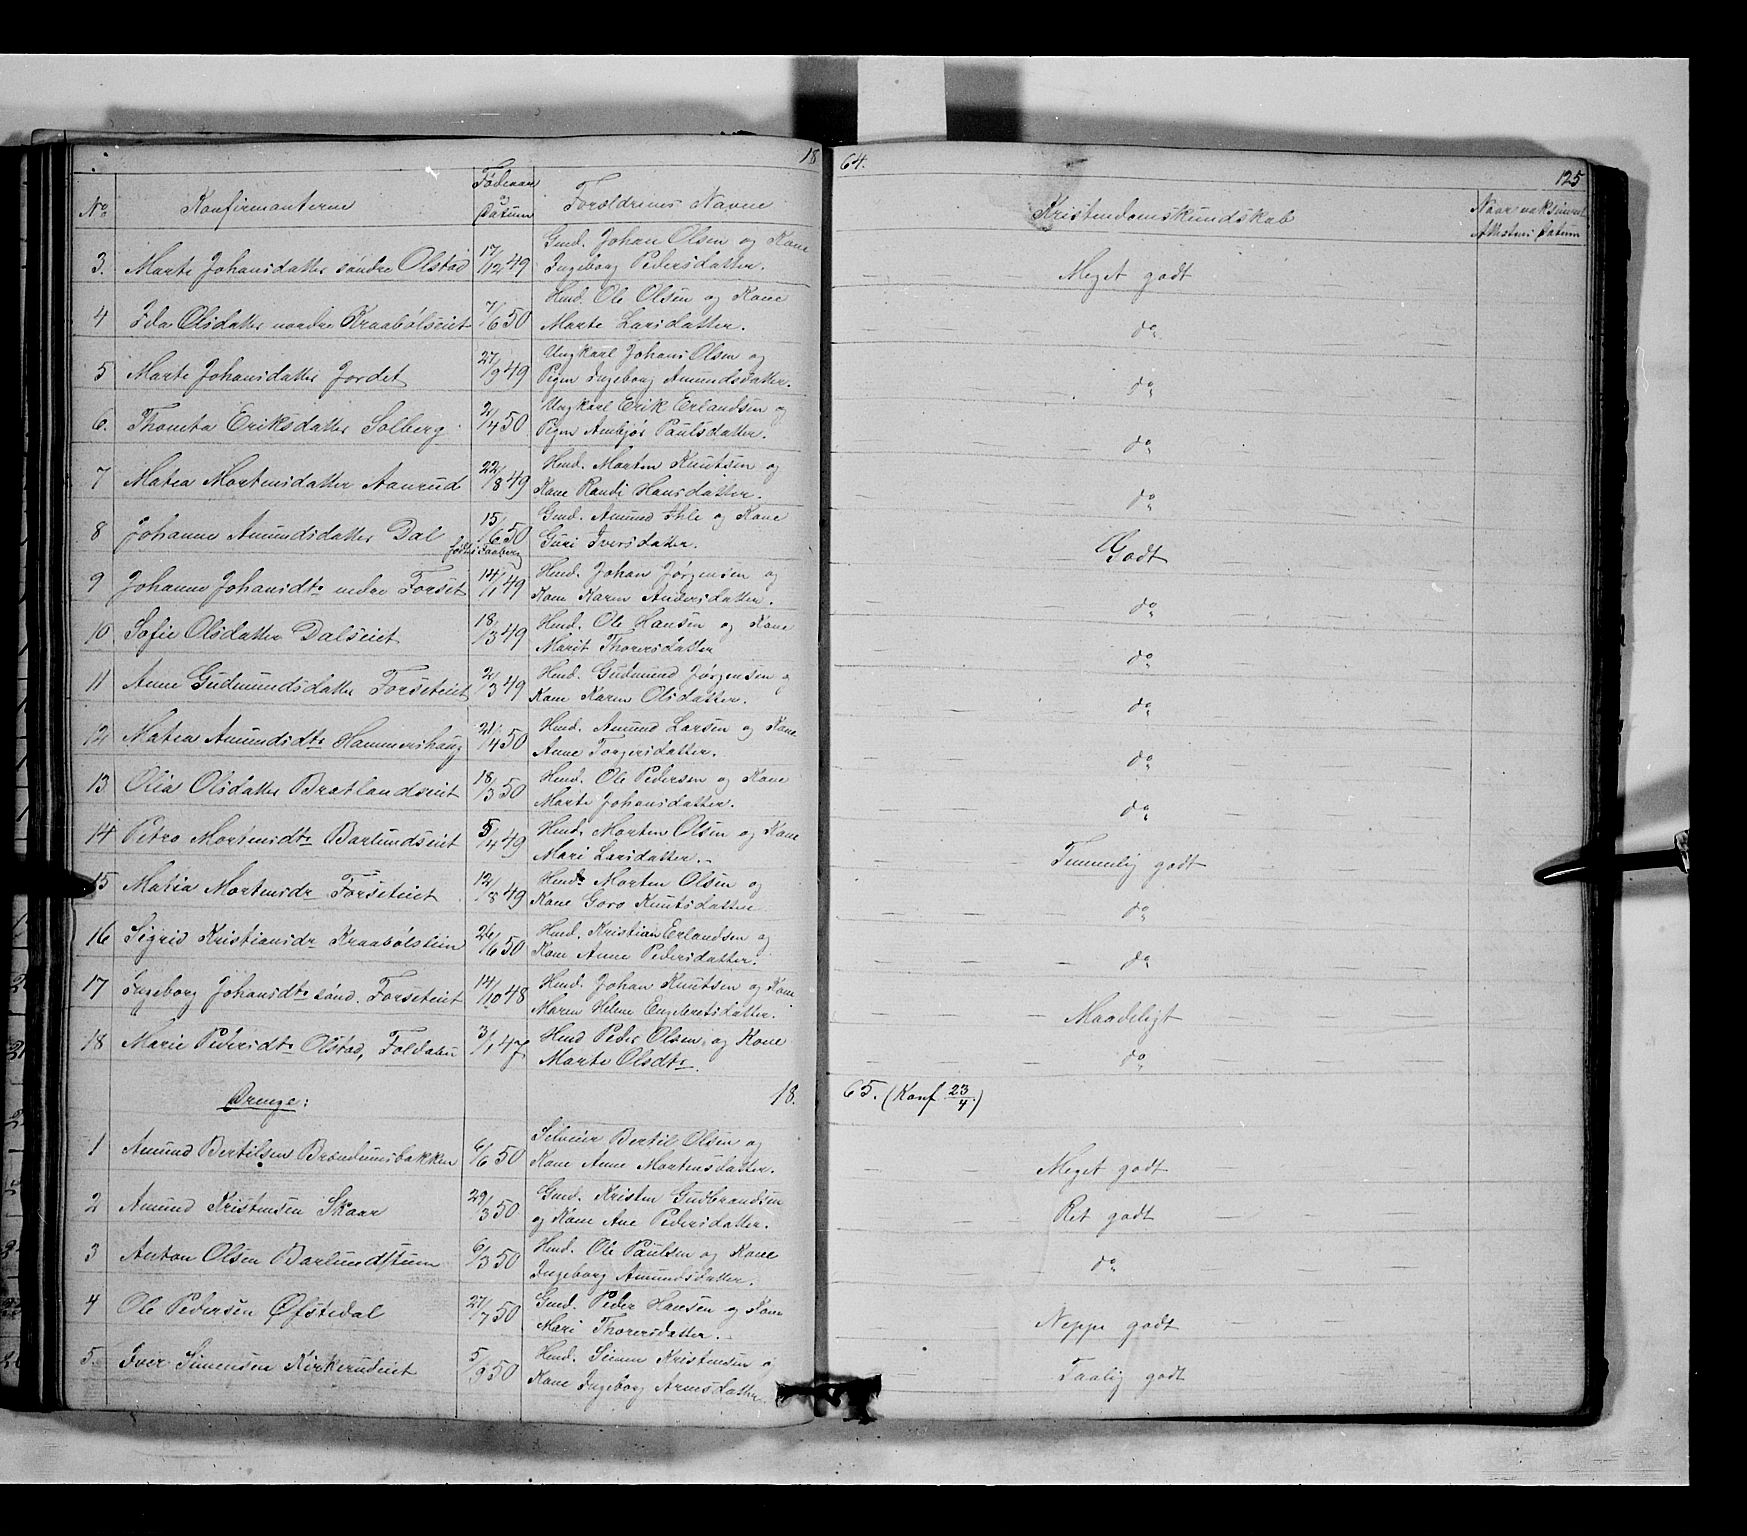 18 64. 125
No Konfirmanterne Fødeaar og Datum Forældrenes Navne Kristendomskundskab Naar vaksineret Attestens Datum
3. Marte Johansdatter søndre Olstad 17/12 49 Gmd. Johan Olsen og Kone
Ingeborg Pedersdatter. Meget godt
4 Ida Olsdatter nordre Kraabølseiet 7/6 50 Hmd. Ole Olsen og Kone
Marte Larsdatter. do
5 Marte Johansdatter Jordet 27/9 49 Ungkarl Johans Olsen og
Pigen Ingeborg Amundsdatter. do
6. Thomta Eriksdatter Solberg 2/4 50 Ungkarl Erik Erlandsen og
Pigen Ambjør Paulsdatter. do
7 Matea Mortensdatter Aanrud 22/8 49 Hmd. Morten Knutsen og
Kone Randi Hansdatter. do
8 Johanne Amundsdatter Dal 15/6 50 Gmd. Amund Ihle og Kone
født i Faaberg Guri Iversdatter. Godt
9 Johanne Johansdtr nedre Forset 14/1 49 Hmd. Johan Jørgensen og
Kone Karen Andersdatter. do
10 Sofie Olsdatter Dalseiet 18/3 49 Hmd. Ole Hansen og Kone
Marit Thorersdatter do
11 Anne Gudmundsdatter Forseteiet 2/3 49 Hmd. Gudmund Jørgensen og
Kone Karen Olsdatter. do
12 Matea Amundsdtr Hammershaug 21/4 50 Hmd. Amund Larsen og Kone
Anne Torgersdatter. do
13. Olia Olsdatter Brætlandseiet 18/3 50 Hmd. Ole Pedersen og Kone
Marte Johansdatter. do
14 Petra Mortensdtr Barlundseiet 5/4 49 Hmd. Morten Olsen og Kone
Mari Larsdatter. Temmelig godt
15 Maria Mortensdr Forseteiet 12/8 49 Hmd. Morten Olsen og
Kone Goro Knutsdatter do
16 Sigrid Kristiansdr Kraabølseien 26/6 50 Hmd. Kristian Erlandsen og
Kone Anne Pedersdatter. do
17 Ingeborg Johansdtr sønd. Forseteiet 14/10 48 Hmd. Johan Knutsen og Kone
Maren Helene Engebretsdatter. Maadeligt
18 Marie Pedersdtr Olstad, 3/1 47 Hmd Peder Olsen og Kone
Marte Olsdtr. do
Drenge: 18. 65. (Konf 23/4.)
1 Amund Bertilsen Brændumsbakken 6/6 50 Selveier Bertil Olsen og
Kone Anne Mortensdatter. Meget godt
2 Amund Kristensen Skaar 29/3 50 Gmd. Kristen Gudbrandsen
og Kone Ane Pedersdatter. Ret godt
3 Anton Olsen Barlundstuen 6/3 50 Hmd. Ole Paulsen og Kone
Ingeborg Amundsdatter. do
4 Ole Pedersen Øfstedal 27/7 50 Gmd. Peder Hansen og Kone
Mari Thorersdatter. Neppe godt
5. Iver Simensen Kirkerudeiet 5/9 50 Hmd. Simen Kristensen og
Kone Ingeborg Arnesdatter. Taalig godt